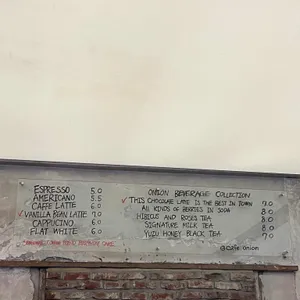 ESPRESSO 5.0
AMERICANO 5.5
CAFFE LATTE 6.0
✓VANILLA BEAN LATTE 7.0
CAPPUCINO 6.0
FLAT WHITE 6.0
ONION BEVERAGE COLLECTION
✓THIS CHOCOLATE LATTE IS THE BEST IN TOWN 7.0
ALL KINDS OF BERRIES IN SODA 8.0
HIBICUS AND ROSES TEA 8.0
SIGNATURE MILK TEA 8.0
YUZU HONEY BLACK TEA 7.0
@cafe.onion